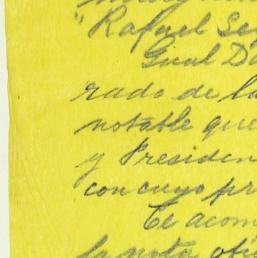 "Rafael Se
Gual Do
rado de la
notable que
y Presiden
con cuyo pr
Te acom
la nota ofi